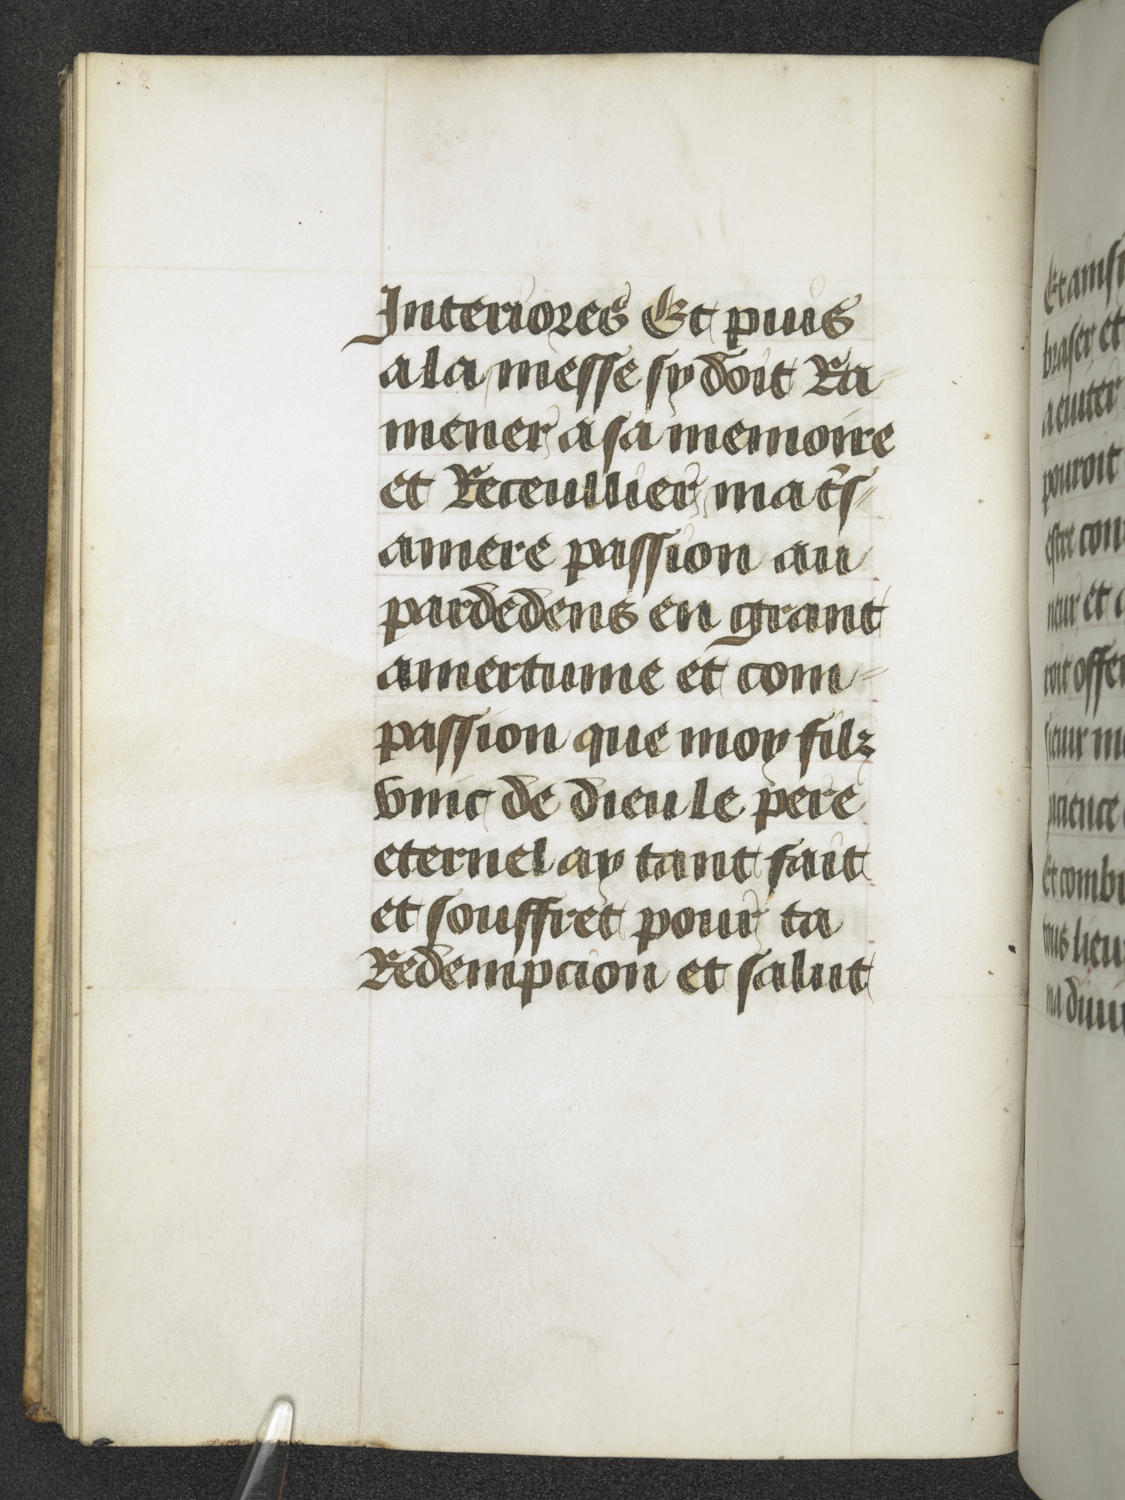 Interiores Et puis
a la messe sy doit Ra
mener a sa memoire
et Receullier ma trs
amere passion au
pardedens en grant
amertume et com-
passion que moy filz
vnic de dieu le pere
eternel ay tant fait
et souffret pour ta
Redempcion et salut
Et ainsi
braser et
a euiter
pouroit
estre con
neur et
roit offen
sieur
pacience
Et comb
lieu